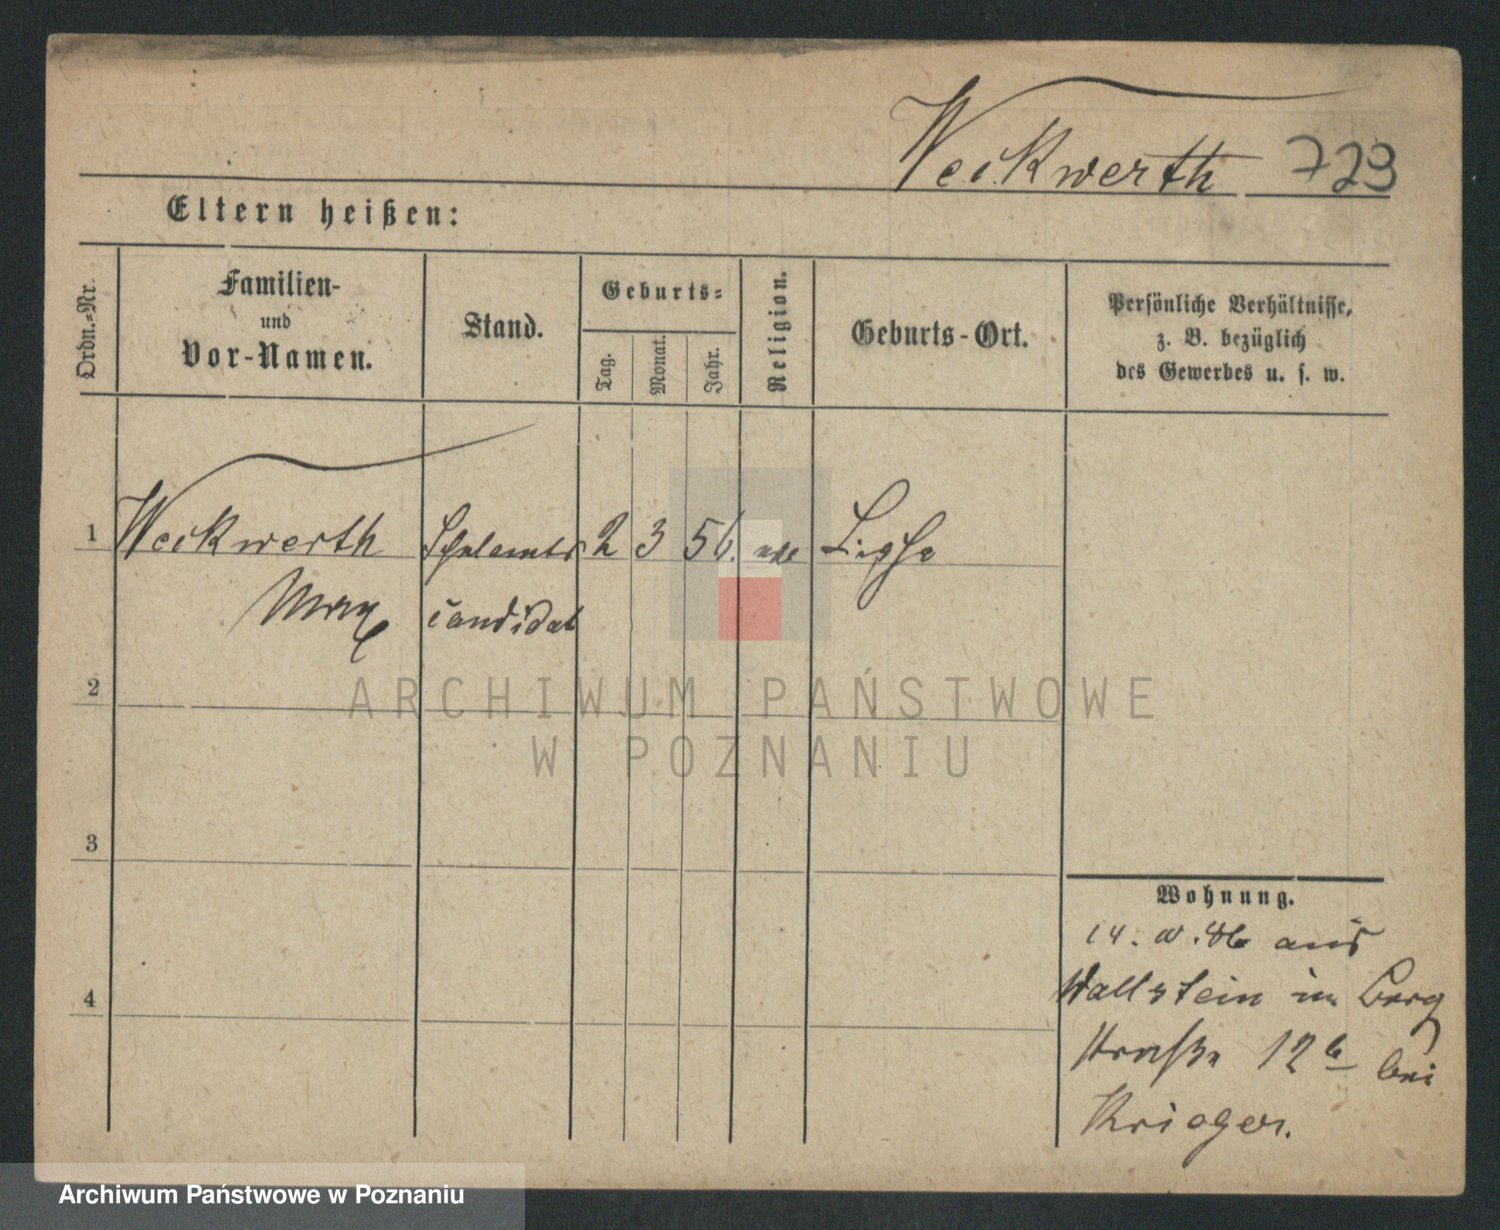 Weikwerth 729
Eltern heißen:
Ordn.=Nr.
Familien-
und
Vor-Namen.
Stand.
Geburts=
Tag.
Monat.
Jahr.
Religion.
Geburts-Ort.
Persönliche Verhältnisse,
z. B. bezüglich
des Gewerbes u. s. w.
1 Weikwerth Schulamts 2 3 56.
Max candidat
2
3
4
Wohnung.
14. 86 aus
Wollstein in Berg
straße 12b bei
Krieger.
ARCHIWUM PAŃSTWOWE
W POZNANIU
Archiwum Państwowe w Poznaniu